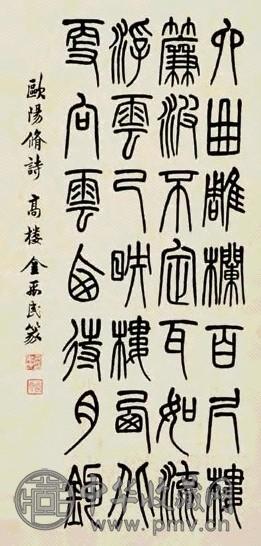 六曲雕欄百尺樓
簾波不定瓦如流
浮雲已映樓西北
更向雲西待月鉤
歐陽脩詩 高樓 金禹民篆
中华收藏网
www.pmv.cn